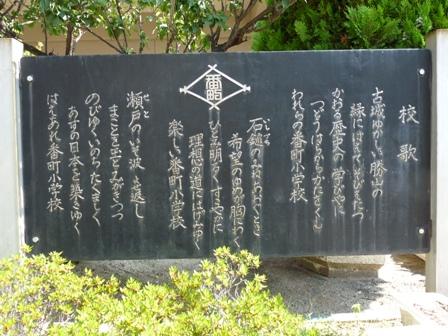 校歌
古城ゆかしい勝山の
緑にはえてそびえたつ
かおる歴史の学びやに
つどうはらから
われらの番町小学校
石鎚のみねあおぐとき
希望のゆめが胸にわく
ひとみ明るくすこやかに
理想の道にはげみゆく
楽しい番町小学校
せと
瀬戸の 波 越し
まことを みがきつつ
のびゆくいのちたくましく
あすの日本を築きゆく
はえあれ番町小学校